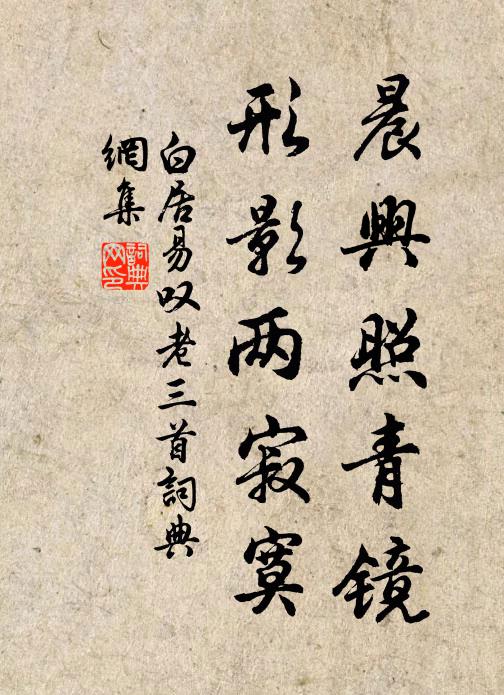 晨興照青镜
形影两寂寞
白居易叹老三首詞典
網集
詞典网印